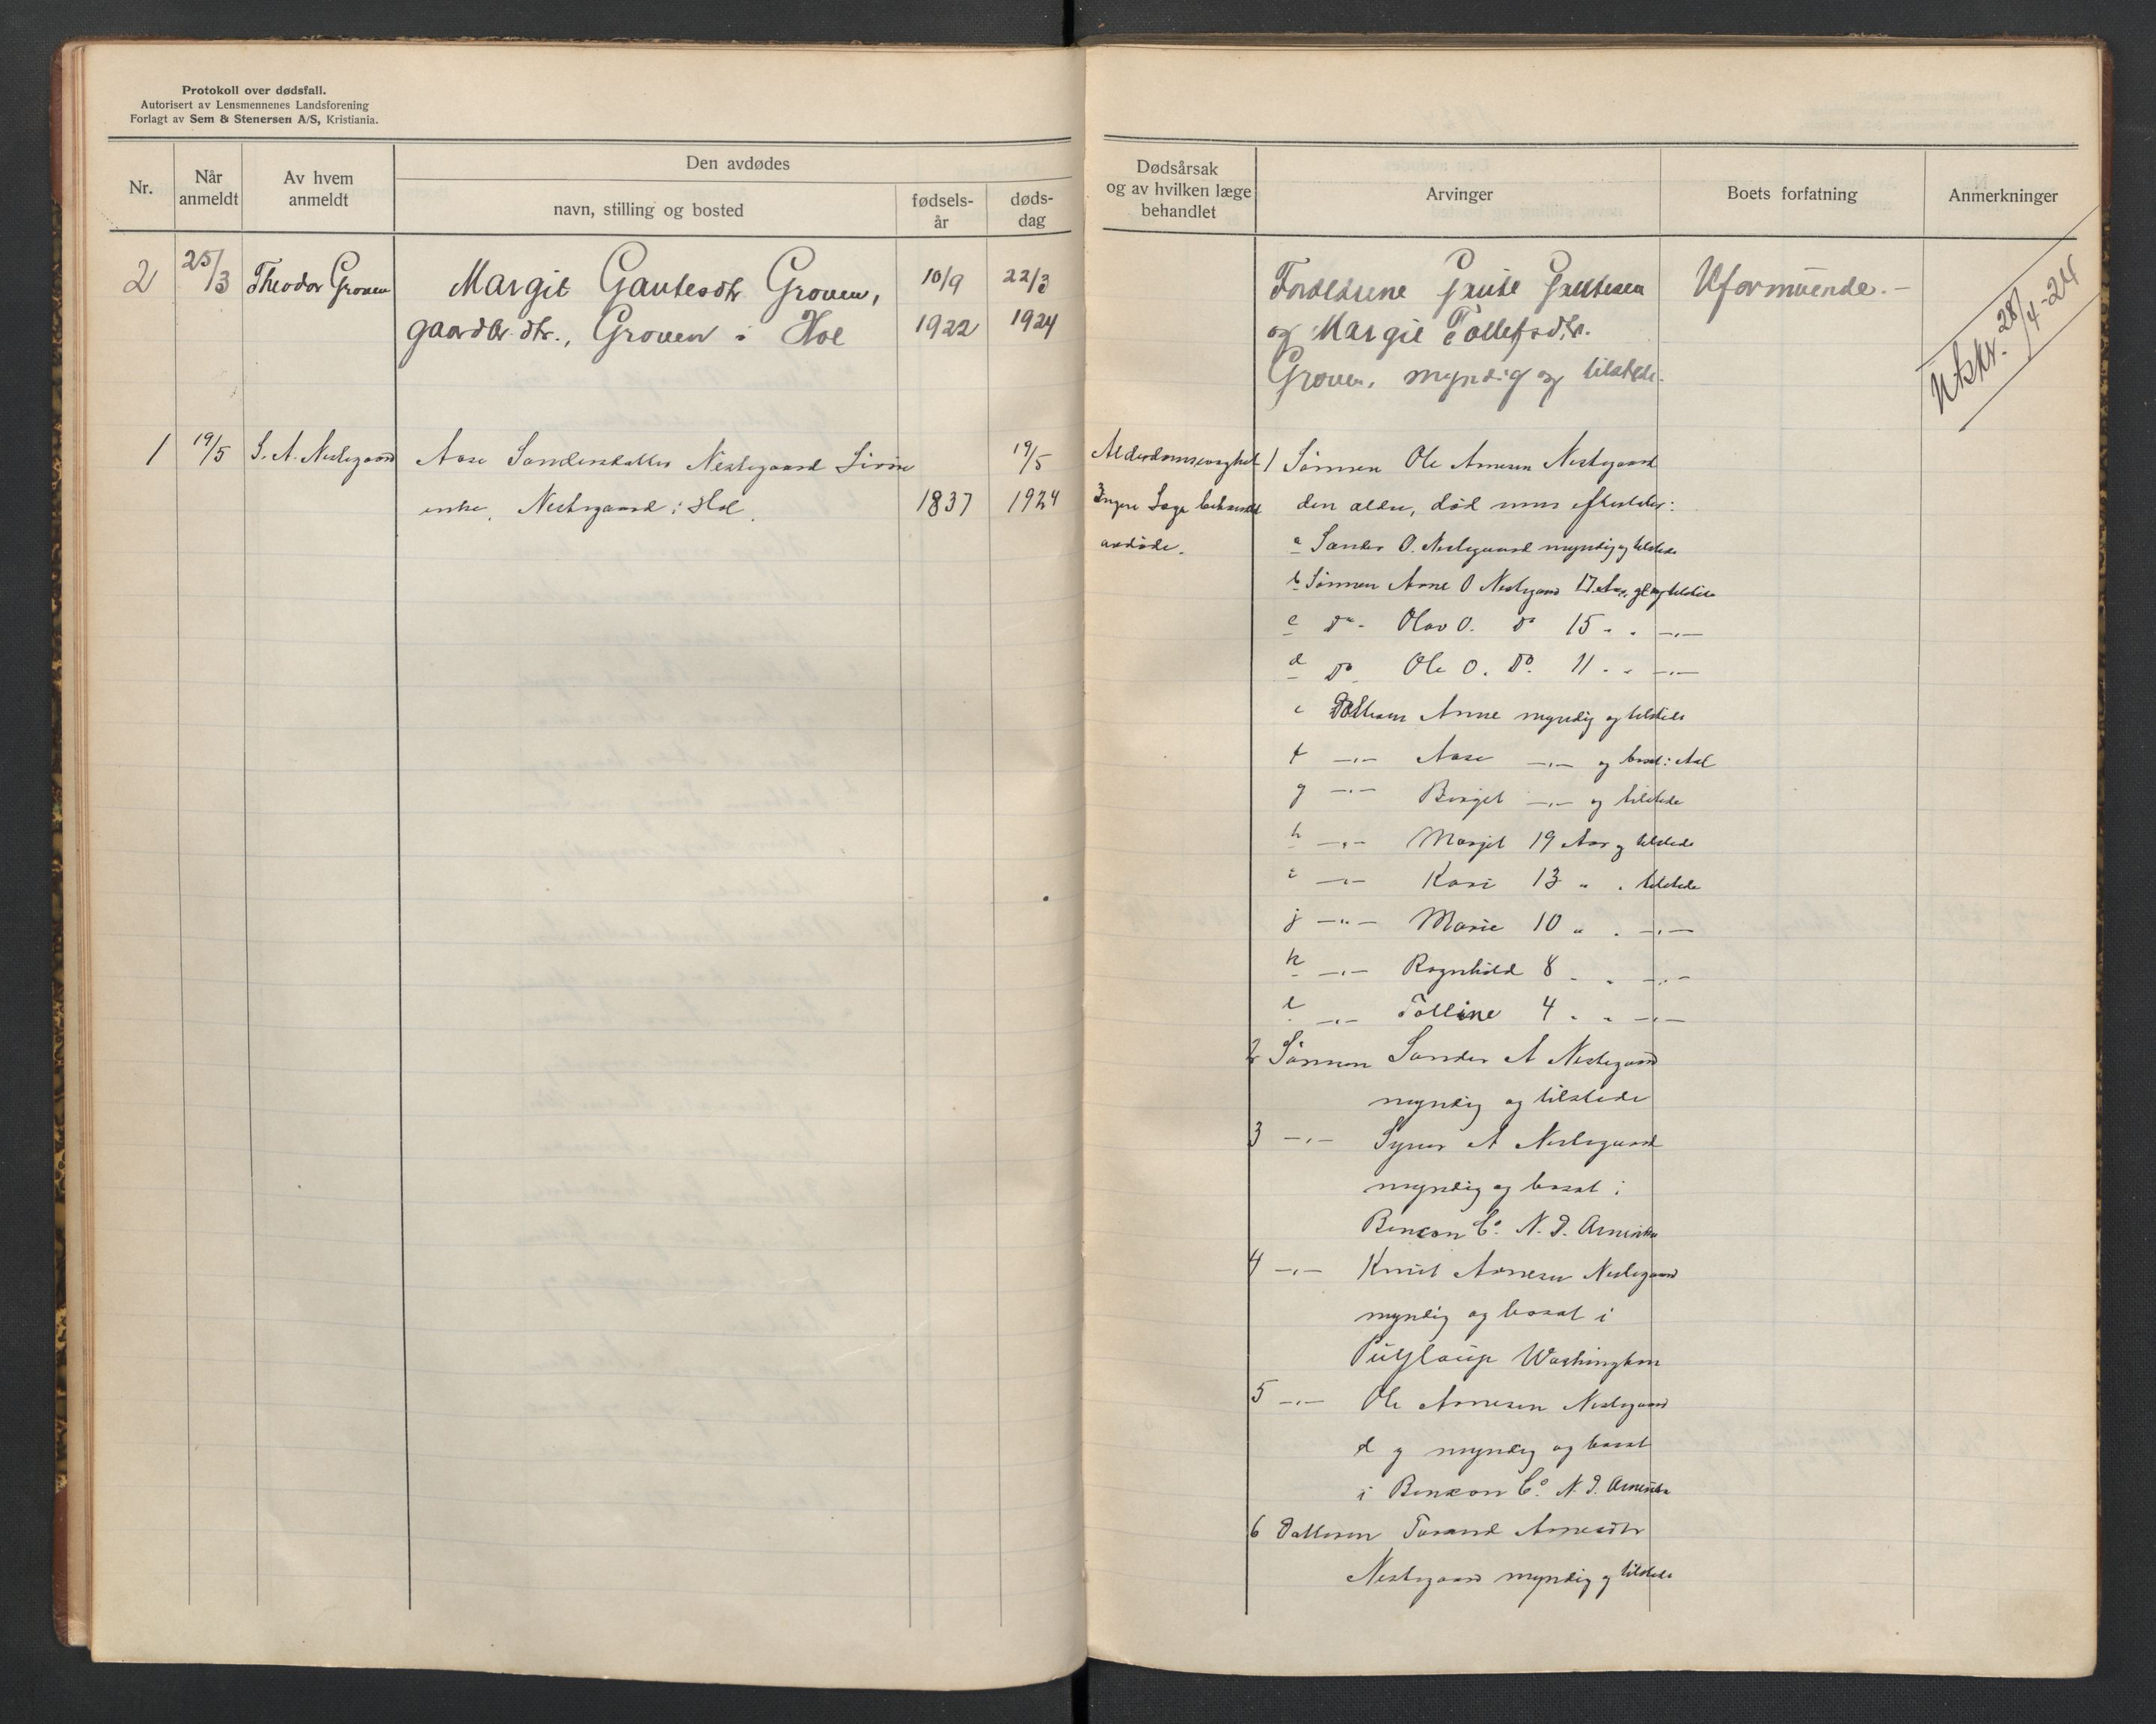 Protokoll over dødsfall.
Autorisert av Lensmennenes Landsforening
Forlagt av Sem & Stenersen A/S, Kristiania.
Nr.
Når anmeldt
Av hvem anmeldt
Den avdødes
navn, stilling og bosted
fødsels-år
døds-dag
Dødsårsak og av hvilken læge behandlet
Arvinger
Boets forfatning
Anmerkninger
2 25/3 Theodor Groven Margit Gautesdtr Groven, 10/9 22/3
gaardbr. dtr., Groven i Hol 1922 1924
Foreldrene Gaute Gautesen
og Margit Tollefsdtr.
Groven, myndig og tilstede.
Uformuende.-
Utskr. 28/4-24
1 19/5 S. A. Nestegaard Aase Sandersdatter Nestegaard 19/5
enke, Nestegaard i Hol. 1837 1924
Alderdomssvaghet
Ingen Læge behandlet
avdøde.
1 Sønnen Ole Arnesen Nestegaard
den eldre, død men efterlater:
a Sander O. Nestegaard myndig og tilstede
b Sønnen Arne O Nestegaard 17 Aar gl og tilstede
c do. Olav O. do 15 " " —"—
d do. Ole O. do. 11 " " —"—
e Datteren Anne myndig og tilstede
f —"— Aase —"— og bosat i Aal
g —"— Birgit —"— og tilstede
h —"— Margit 19 Aar og tilstede
i —"— Kari 13 " " tilstede
j —"— Marie 10 " " —"—
k —"— Ragnhild 8 " " —"—
l —"— Tolline 4 " " —"—
2 Sønnen Sander A Nestegaard
myndig og tilstede
3 —"— Syver A Nestegaard
myndig og bosat i
Benson Co. N. D. Amerika
4 —"— Knut Arnesen Nestegaard
myndig og bosat i
Washington
5 —"— Ole Arnesen Nestegaard
d y myndig og bosat
i Benson Co. N. D. Amerika
6 Datteren Torand Arnesdtr
Nestegaard myndig og tilstede